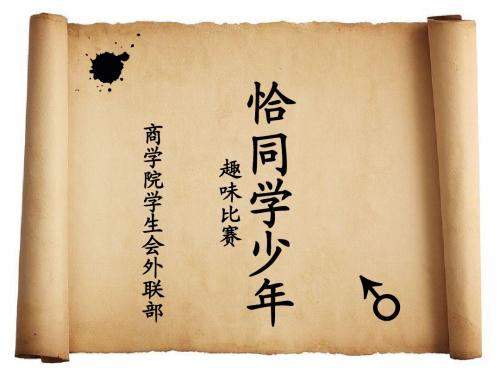 恰同学少年
趣味比赛
商学院学生会外联部